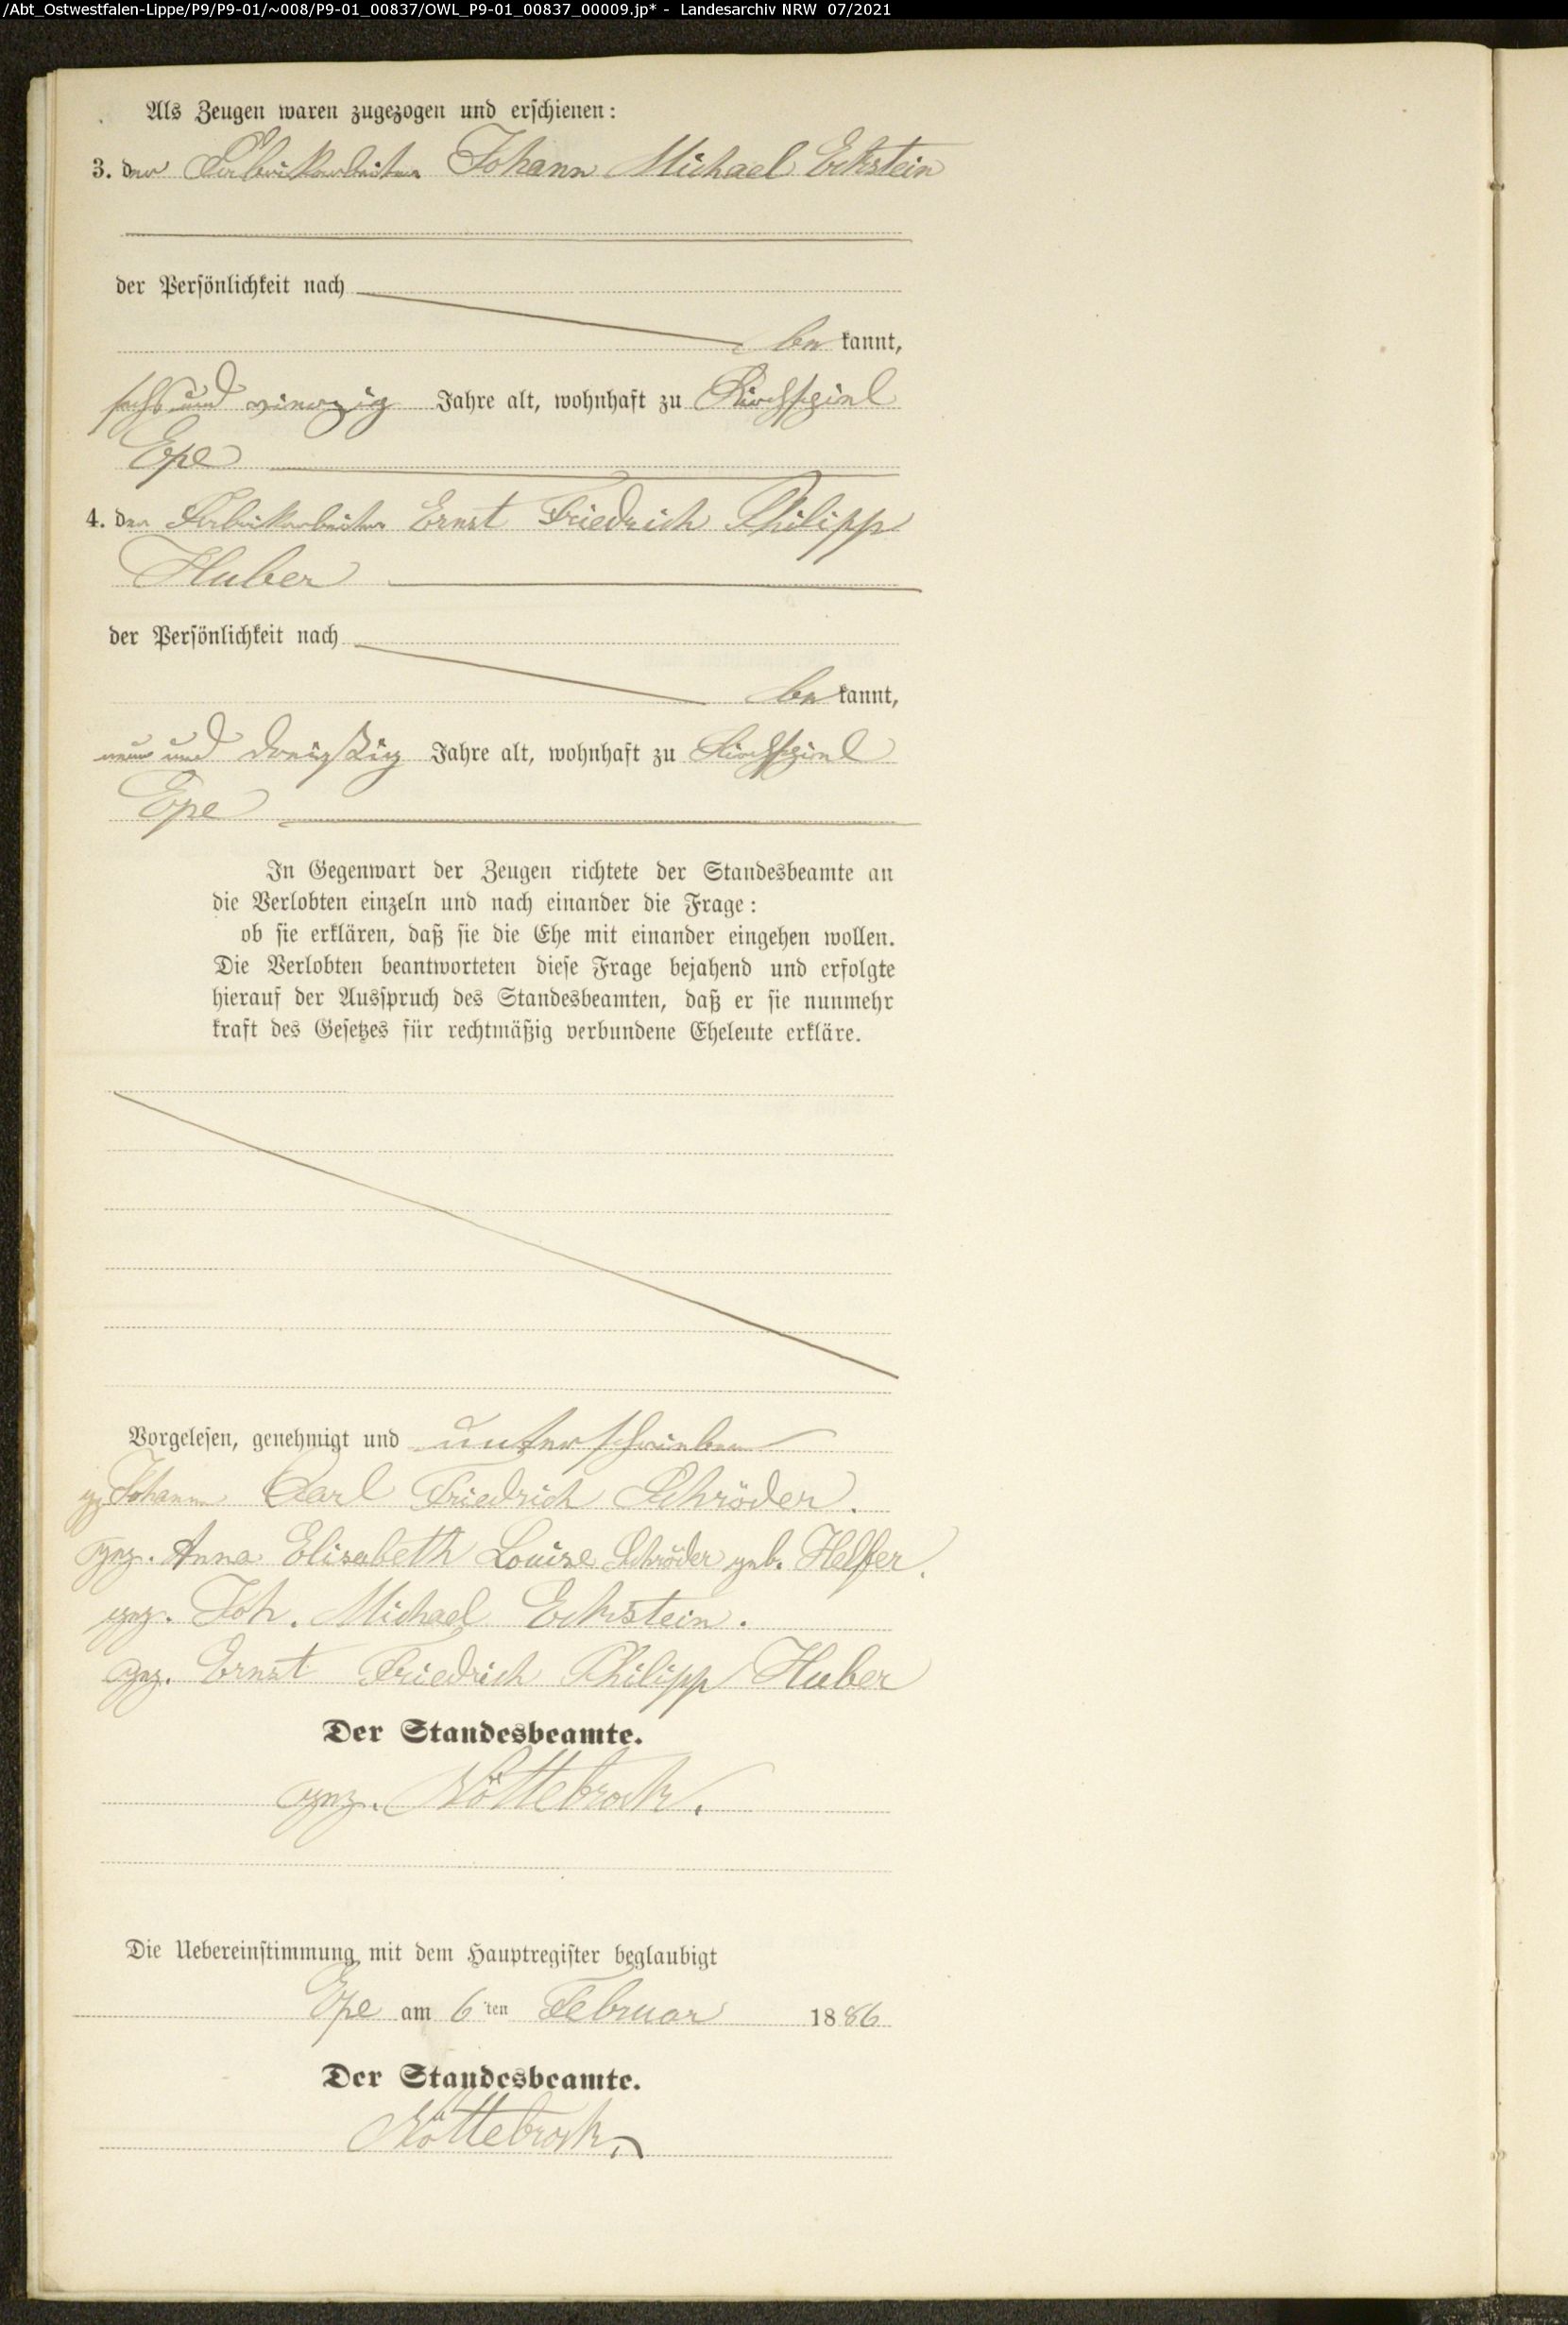 /Abt_Ostwestfalen-Lippe/P9/P9-01/~008/P9-01_00837/OWL_P9-01_00837_00009.jp* - Landesarchiv NRW 07/2021
Als Zeugen waren zugezogen und erschienen:
3. der Fabrikarbeiter Johann Michael Eckstein
der Persönlichkeit nach
be kannt,
sechs und vierzig Jahre alt, wohnhaft zu Kirchspiel
Epe
4. der Fabrikarbeiter Ernst Friedrich Philipp
Huber
der Persönlichkeit nach
be kannt,
neun und dreißig Jahre alt, wohnhaft zu Kirchspiel
Epe
In Gegenwart der Zeugen richtete der Standesbeamte an
die Verlobten einzeln und nach einander die Frage:
ob sie erklären, daß sie die Ehe mit einander eingehen wollen.
Die Verlobten beantworteten diese Frage bejahend und erfolgte
hierauf der Ausspruch des Standesbeamten, daß er sie nunmehr
kraft des Gesetzes für rechtmäßig verbundene Eheleute erkläre.
Vorgelesen, genehmigt und unterschrieben
gz Johann Carl Friedrich Schröder.
gez. Anna Elisabeth Louise Schröder geb. Helfer.
gez. Joh. Michael Eckstein.
gez. Ernst Friedrich Philipp Huber
Der Standesbeamte.
gez. Nöttebrock.
Die Uebereinstimmung mit dem Hauptregister beglaubigt
Epe am 6ten Februar 1886
Der Standesbeamte.
Nöttebrock.